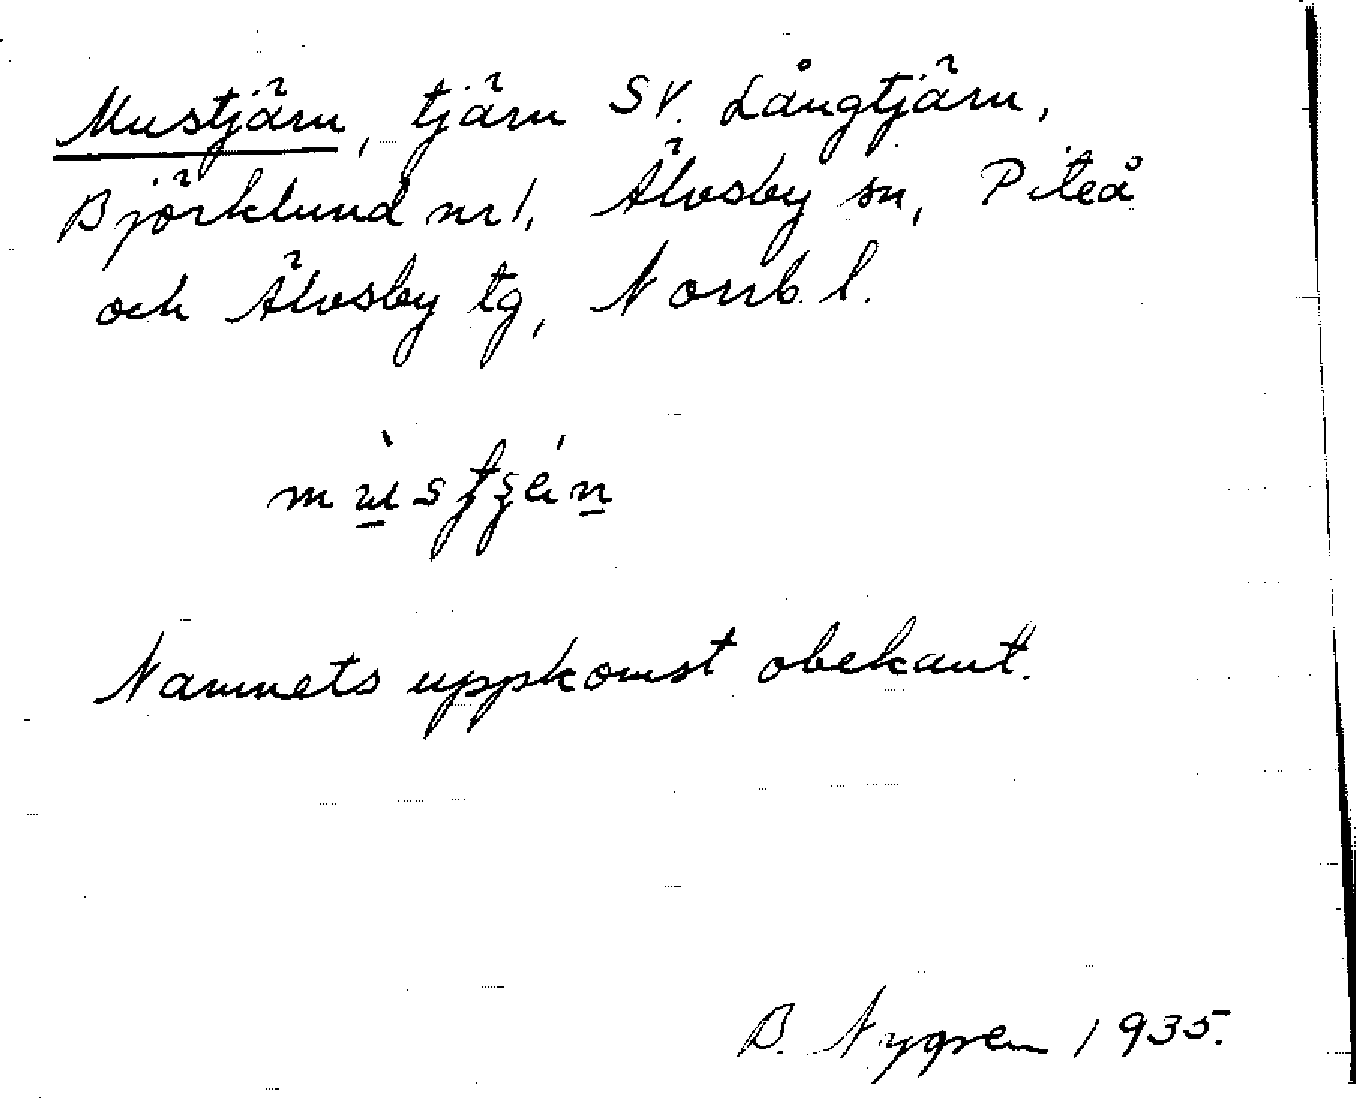 Mustjärn, tjärn SV. Långtjärn,
Björklund nr 1, Älvsby sn, Piteå
och Älvsby tg, Norrb. l.
Namnets uppkomst obekant.
B. Nygren 1935.